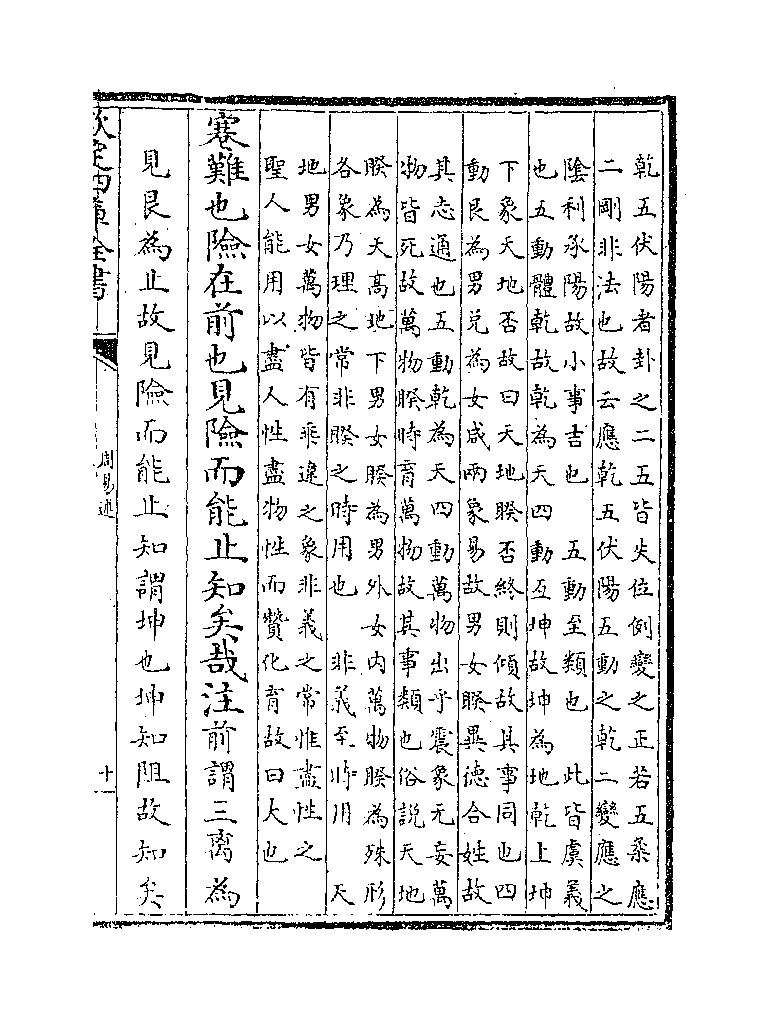 乾五伏陽者卦之二五皆失位例變之正若五柔應
二剛非法也故云應乾五伏陽五動之乾二變應之
陰利承陽故小事吉也　五動至類也　此皆虞義
也五動體乾故乾為天四動互坤故坤為地乾上坤
下象天地否故曰天地睽否終則傾故其事同也四
動艮為男兌為女咸兩象易故男女睽異德合姓故
其志通也五動乾為天四動萬物出乎震象无妄萬
物皆死故萬物睽時育萬物故其事類也俗說天地
睽為天高地下男女睽為男外女内萬物睽為殊形
各象乃理之常非睽之時用也　非義至時用　天
地男女萬物皆有乖違之象非義之常惟盡性之
聖人能用以盡人性盡物性而贊化育故曰大也
蹇難也險在前也見險而能止知矣哉注前謂三離為
見艮為止故見險而能止知謂坤也坤知阻故知矣
欽定四庫全書
周易述
十一